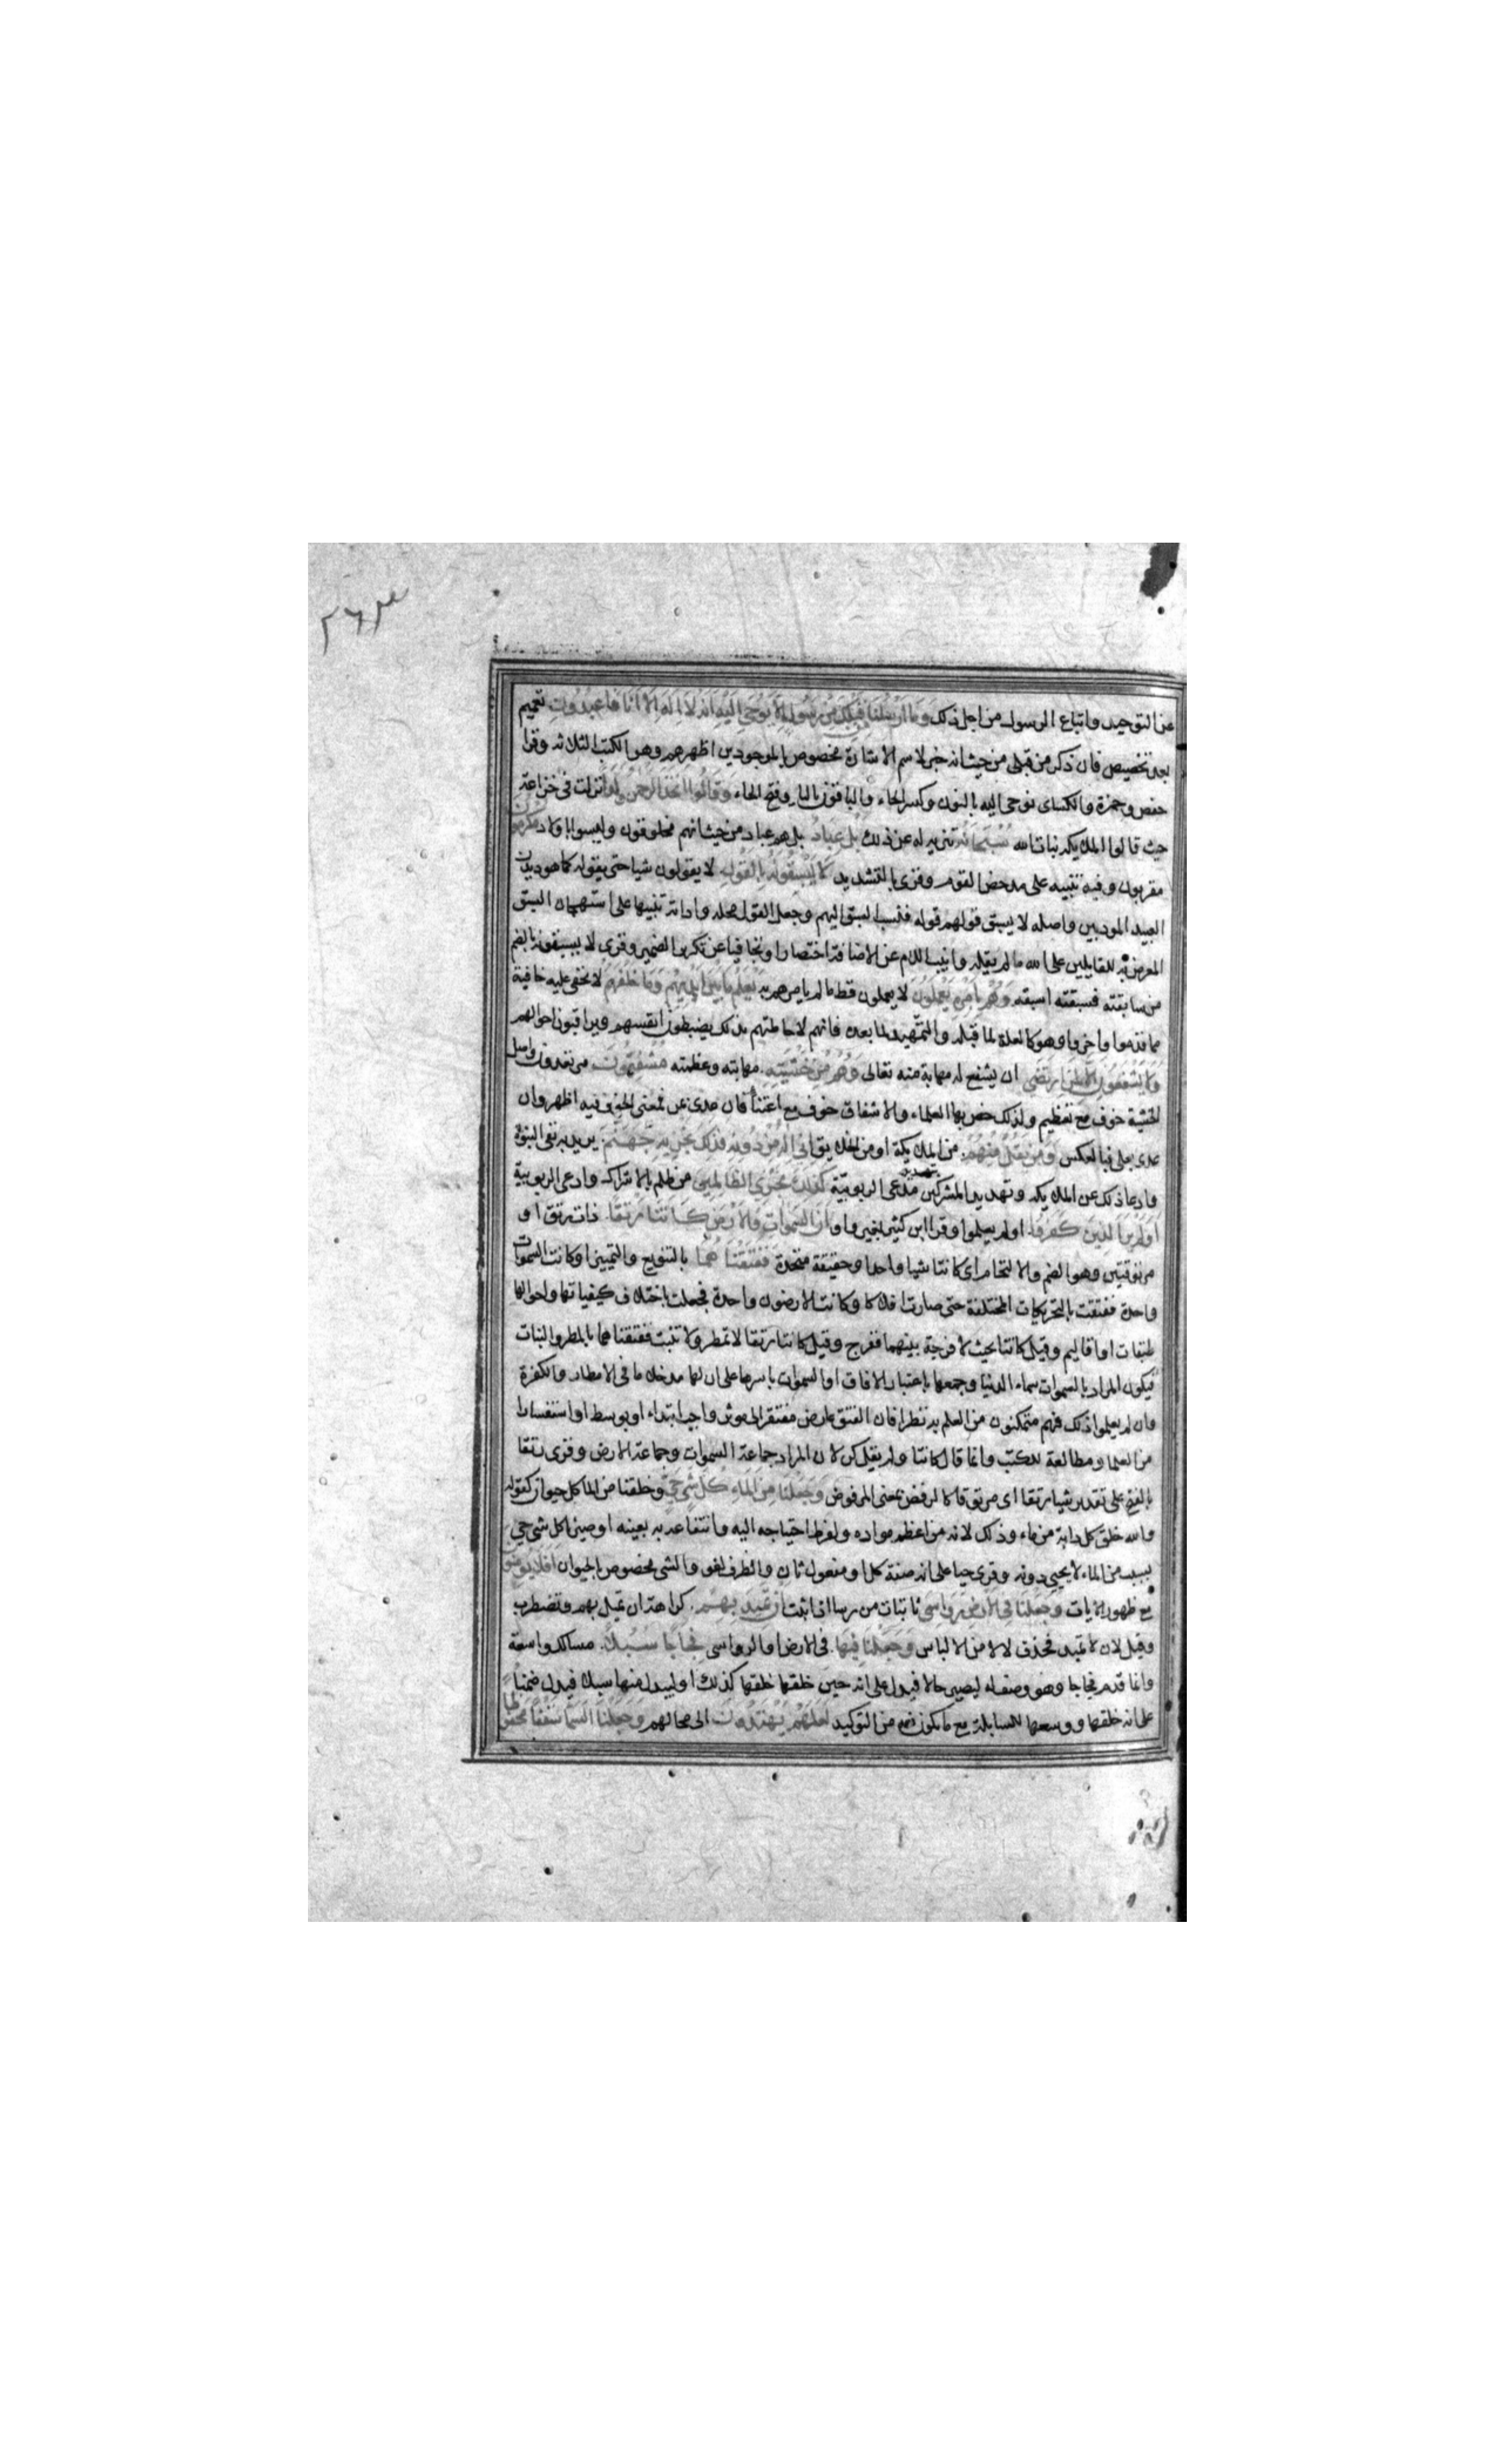 ٢٦٣
عن التوحيد واتباع الرسول من اجل ذلك وَمَا اَرْسَلْنَا قَبْلِكَ مِنْ رَسُولٍ اِلَّا يُوحَى اِلَيْهِ اَنَّهُ لَا اِلَهَ اِلَّا اَنَا فَاعْبُدُونِ تعميم
بعد تخصيص فان ذكر من قبلى من حيث انه خبر لاسم الاشارة مخصوص بالموجودين اظهرهم وهو الكتب الثلاثه وقرا
حفص وحمزة والكساى نوحى اليه بالنون وكسر الحاء والباقون باليا وفتح الحاء وَقَالُوا اتَّخَذَ الرَّحْمَنُ وَلَدًا نزلت فى خزاعة
حيث قالوا الملايكه بنات الله سُبْحَانَهُ تنزيه له عن ذلك بَلْ عِبَادٌ بل هم عباد من حيث انهم مخلوقون وليسوا باولاد مُكْرَمُونَ
مقربون وفيه تنبيه على مدحض القوم وقرى بالتشديد لَا يَسْبِقُونَهُ بِالْقَوْلِ لا يقولون شيا حتى يقوله كما هو ديدن
العبيد المودبين واصله لا يسبق قولهم قوله فنسب السبق اليهم وجعل القول محله واداته تنبيها على استهجان السبق
المعرض به للقايلين على الله ما لم يقله وانيب اللام عن الاضافة اختصارا وتجافيا عن تكرير الضمير وقرى لا يسبقونه بالضم
من سابقته فسبقته اسبقه وَهُمْ بِاَمْرِهِ يَعْمَلُونَ لا يعملون قط ما لم يامرهم به يَعْلَمُ مَا بَيْنَ اَيْدِيهِمْ وَمَا خَلْفَهُمْ لا تخفى عليه خافية
مما قدموا واخروا وهو كالعلة لما قبله والتمهيد لما بعده فانهم لاحاطتهم بذلك يضبطون انفسهم ويراقبون احوالهم
وَلَا يَشْفَعُونَ اِلَّا لِمَنِ ارْتَضَى ان يشفع له مهابة منه تعالى وَهُمْ مِنْ خَشْيَتِهِ مهابته وعظمته مُشْفِقُونَ مرتعدون واصل
الخشية خوف مع تعظيم ولذلك خص بها العلماء والاشفاق خوف مع اعتناء فان عدى عن فمعنى الخوف فيه اظهر وان
عدى بعلى فبالعكس وَمَنْ يَقُلْ مِنْهُمْ من الملايكة او من الخلايق اِنِّى اِلَهٌ مِنْ دُونِهِ فَذَلِكَ نَجْزِيهِ جَهَنَّمَ يريد به نفى النبوة
وادعا ذلك عن الملايكه وتهديد المشركين بتهديد مدعى الربوبيّة كَذَلِكَ نَجْزِى الظَّالِمِينَ من ظلم بالاشراك وادعى الربوبية
اَوَلَمْ يَرَ الَّذِينَ كَفَرُوا اولم يعلموا وقرا ابن كثير بغير واو اَنَّ السَّمَوَاتِ وَالْاَرْضَ كَانَتَا رَتْقًا ذات رتق او
مرتوقتين وهو الضم والالتحام اى كانتا شيا واحدا وحقيقة متحدة فَفَتَقْنَاهُمَا بالتنويع والتمييز او كانت السموات
واحدة ففتقت بالتحريكات المختلفة حتى صارت افلاكا وكانت الارضون واحدة فجعلت باختلاف كيفياتها واحوالها
طبقات او اقاليم وقيل كانتا بحيث لا فرجة بينهما ففرج وقيل كانتا رتقا لا تمطر ولا تنبت ففتقناهما بالمطر والنبات
فيكون المراد بالسموات سماء الدنيا وجمعها باعتبار الافاق او السموات باسرها على ان لها مدخلا ما فى الامطار والكفرة
وان لم يعلموا ذلك فهم متمكنون من العلم به نظرا فان الفتق عارض مفتقر الى موثر واجب ابتداء او بوسط او استفسارا
من العلما ومطالعة للكتب وانما قال كانتا ولم يقل كن لان المراد جماعة السموات وجماعة الارض وقرى رتقا
بالفتح على تقدير شيا رتقا اى مرتوقا كالرفض بمعنى المرفوض وَجَعَلْنَا مِنَ الْمَاءِ كُلَّ شَىْءٍ حَىٍّ وخلقنا من الما كل حيوان كقوله
والله خلق كل دابة من ماء وذلك لانه من اعظم مواده ولفرط احتياجه اليه وانتفاعه به بعينه او صيرنا كل شى حى
بسبب من الماء لا يحيى دونه وقرى حيا على انه صفة كل او مفعول ثان والظرف لغو والشى مخصوص بالحيوان اَفَلَا يُؤْمِنُونَ
مع ظهور الايات وَجَعَلْنَا فِى الْاَرْضِ رَوَاسِىَ ثابتات من رسا اذا ثبت اَنْ تَمِيدَ بِهِمْ كراهة ان تميل بهم وتضطرب
وقيل لان لا تميد فحذف لا لامن الالباس وَجَعَلْنَا فِيهَا فى الارض او الرواسى فِجَاجًا سُبُلًا مسالك واسعة
وانما قدم فجاجا وهو وصف له ليصير حالا فيدل على انه حين خلقها خلقها كذلك او ليبدل منها سبلا فيدل ضمنا
على انه خلقها ووسعها للسابلة مع ما يكون فيه من التوكيد لَعَلَّهُمْ يَهْتَدُونَ الى مصالحهم وَجَعَلْنَا السَّمَاءَ سَقْفًا مَحْفُوظًا